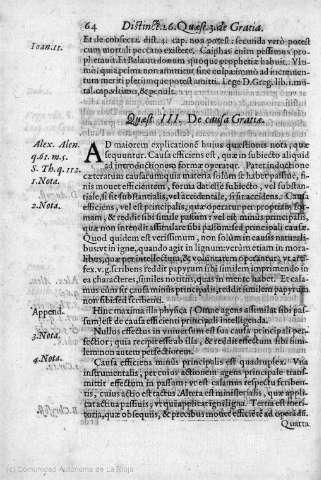 64 Distinct. 26. Quæst. 3. de Gratia.
Ioan. 11.
Et de consecra. dist. 4. cap. non potest: secunda verò potest
cum mortali peccato existere. Caiphas enim pessimus pro
phetauit. Et Balaam donum quoque prophetiæ habuit.
mò quia prima non amittitur sine culpa immò ad incremen
tum meriti plerunque potest amitti. Lege D. Greg. lib. 2. mo
ral. capad.
Quæst. III. De causa Gratiæ.
Alex. Alen.
q. 61. m. 5.
S. Th. q. 112.
1. Nota.
AD maiorem explicationē huius quæstionis nota, quæ
sequuntur. Causa efficiens est, quæ in subiecto aliquid
ad introductionem formæ operatur. Patet inductione
cæterarum causarum quia materia solùm se habet passiuè, fi-
nis mouet efficientem, forma dat esse subiecto, vel substan-
tiale, si sit substantialis, vel accidentale, si sit accidens. Causa
2. Nota.
efficiens, vel est principalis, quæ operatur per propriam for-
mam, & reddit sibi simile passum: vel est minùs principalis,
quæ non intendit assimilare sibi passum sed principali causæ.
Quod quidem est verissimum, non solùm in causis naturali-
bus vt in igne, quando agit in lignum: verùm etiam in mora-
libus, quæ per intellectū, & voluntatem operantur, vt arti-
fex. v. g. scribens reddit papyrum sibi similem imprimendo in
ea characteres, similes notitijs, quas in mente habet. Et cala-
mus ad ipsum causa minùs principalis, reddit similem papyrum
non sibi sed scribenti.
Append.
Hinc maxima illa physica (Omne agens assimilat sibi pas-
sum) est de causa efficienti principali intelligenda.
3. Nota.
Nullus effectus in vniuersum est sua causa principali per-
fectior; quia recipit esse ab illa, & reddit effectum sibi simi-
lem non autem perfectiorem.
4. Nota.
Causa efficiens minùs principalis est quadruplex. Vna
instrumentalis, per cuius actionem agens principale trans-
mittit effectum in passum: vt est calamus respectu scriben-
tis, cuius actio est tactus. Altera est ministerialis, quæ appli-
cat actiua passiuis, vt qui applicat ignem ligna. Tertia est meri-
toria, quæ obsequijs, & precibus mouet efficiētē ad operādū.
Quarta
(c) Comunidad Autónoma de La Rioja